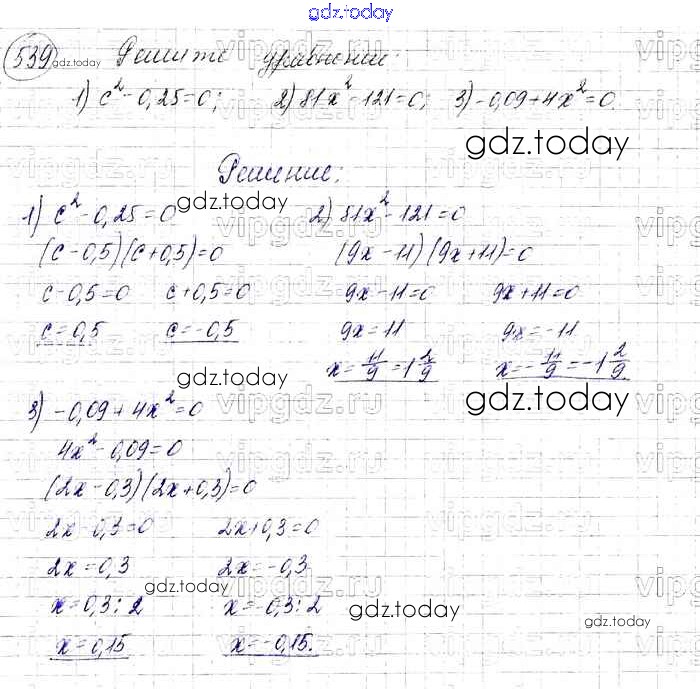 gdz.today
539 gdz.today Решите уравнение:
1) c² - 0,25 = 0; 2) 81x² - 121 = 0; 3) -0,09 + 4x² = 0
gdz.today
Решение:
gdz.today
1) c² - 0,25 = 0 2) 81x² - 121 = 0
(c - 0,5)(c + 0,5) = 0 (9x - 11)(9x + 11) = 0
c - 0,5 = 0 c + 0,5 = 0 9x - 11 = 0 9x + 11 = 0
c = 0,5 c = -0,5 9x = 11 9x = -11
x = 11/9 = 1 2/9 x = -11/9 = -1 2/9
gdz.today
gdz.today
3) -0,09 + 4x² = 0
4x² - 0,09 = 0
(2x - 0,3)(2x + 0,3) = 0
2x - 0,3 = 0 2x + 0,3 = 0
2x = 0,3 2x = -0,3
gdz.today
x = 0,3 : 2 x = -0,3 : 2
gdz.today
gdz.today
x = 0,15 x = -0,15.
vipgdz.ru